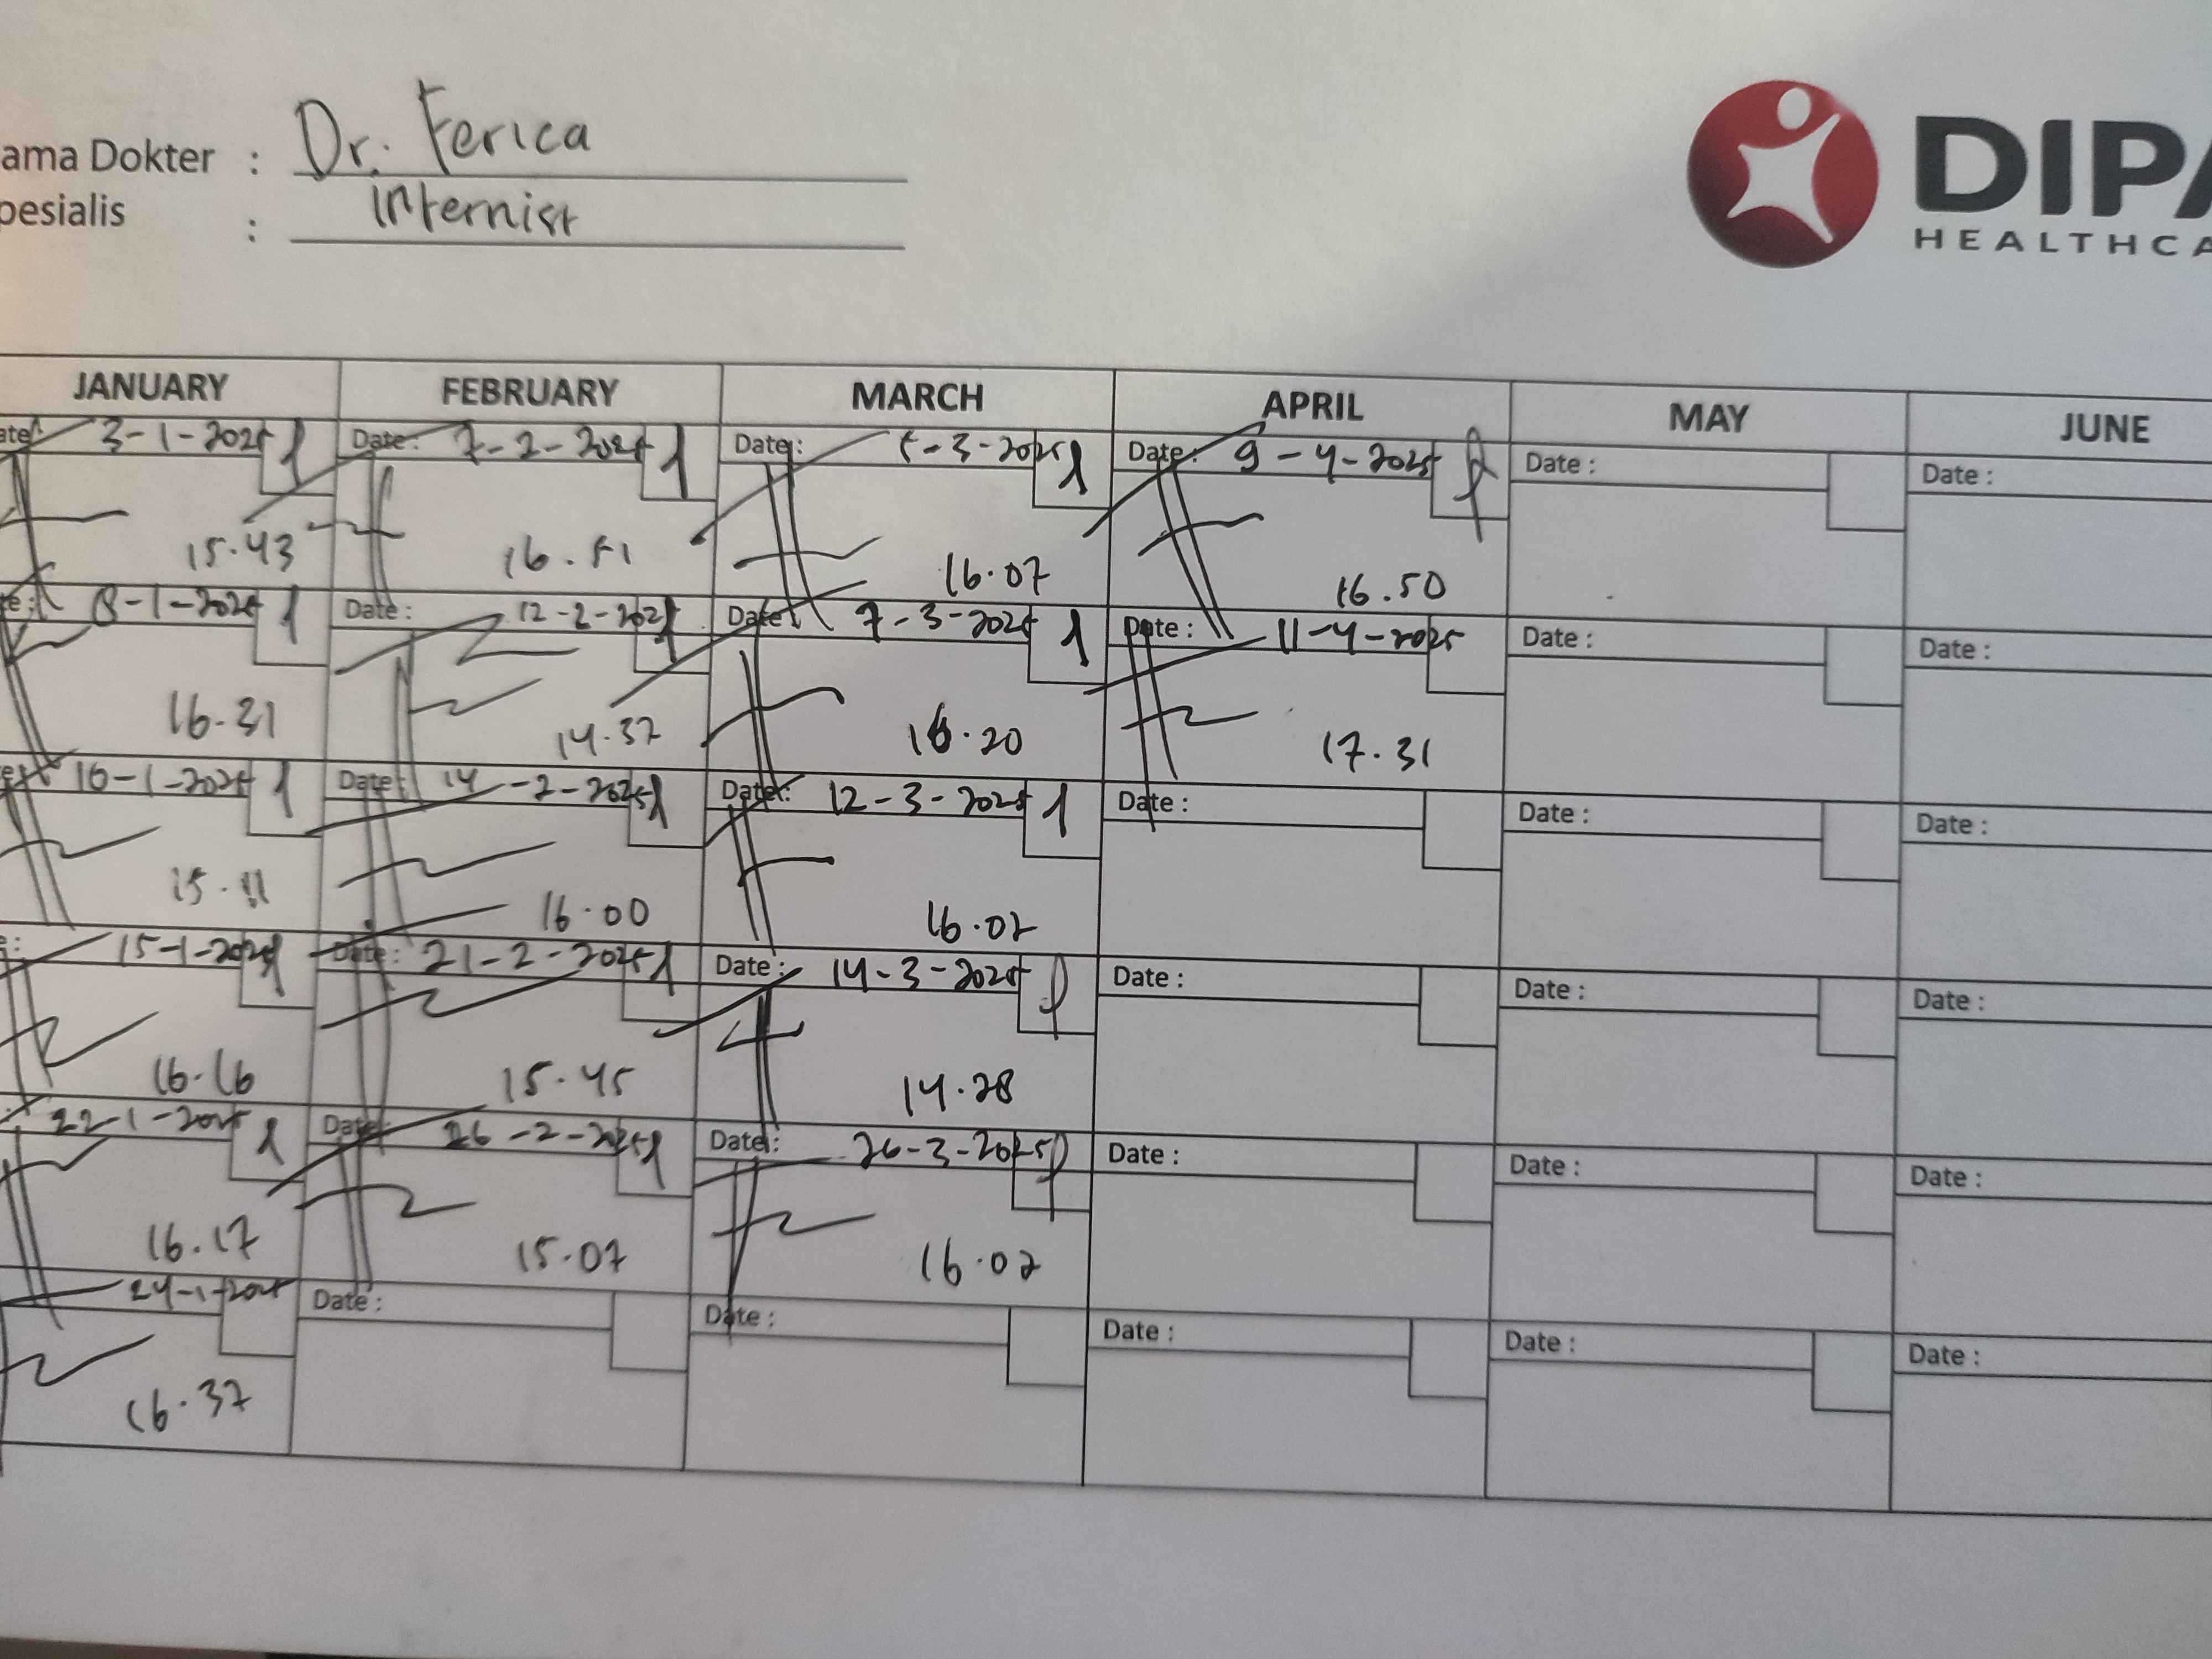 ama Dokter : Dr. Ferica
pesialis : Internist
DIPA
HEALTHCA
JANUARY FEBRUARY MARCH APRIL MAY JUNE
ate: 3-1-2025 Date: 7-2-2025 Date: 5-3-2025 Date: 9-4-2025 Date : Date :
15.43 16.51 16.07 16.50
e: 8-1-2025 Date: 12-2-2025 Date: 7-3-2025 Date : 11-4-2025 Date : Date :
16.31 14.37 16.20 17.31
10-1-2025 Date: 14-2-2025 Date: 12-3-2025 Date : Date : Date :
15.11 16.00 16.02
e: 15-1-2025 Date: 21-2-2025 Date : 14-3-2025 Date : Date : Date :
16.16 15.45 14.28
22-1-2025 Date: 26-2-2025 Date: 26-3-2025 Date : Date : Date :
16.17 15.07 16.02
24-1-2025 Date : Date : Date : Date : Date :
16.37